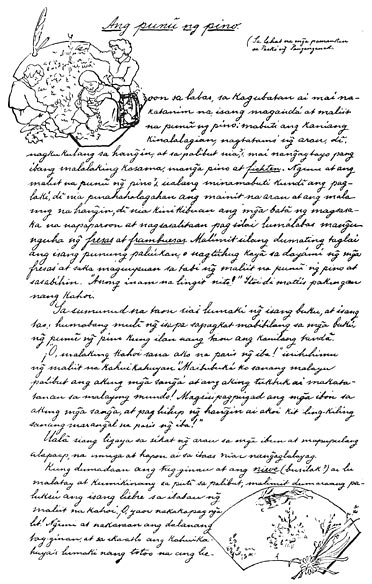 Ang punũ ng pino.
(Sa lahat na mga pamankin
sa Paskó ng Panganganak.
Doon sa labas, sa Kagubatan ai mai na-
katanim na isang magandá at maliit
na punũ ng pinó; mabuti ang kaniang
kinalalagian, nagtatamó ng arau, di,
nagkukulang sa hangin, at sa palibut niá, mai nangagtayo pang
ibang malalaking kasama, mangá pino at fichten. Ngunì at ang
maliit na punũ ng pinó, ualang minamabuti kundi ang pag-
laki, di niá pinahahalagahan ang mainit na arau at ang mala-
mig na hangin, di niá kinikibuan ang mga batà ng magsasa-
ka na napaparoon at nagsasalitaan pag silai lumálabas mangu-
nguha ng fresas at frambuesas. Malimit silang dumating taglai
ang isang punung palaiukan, o nagtuhug kayá sa dayami ng mga
fresas at saka mauupuan sa tabi ng maliit na punũ ng pino at
sasabihin. "Anong inam na lingit nitó!" Itó'i di matiis pakingan
nang kahoi.
Sa sumunud na taon siai lumaki ng isang bukú, at isang
taó; humabang muli ng isa pá sapagkat mabibilang sa mga bukú
ng punũ ng pino kung ilan nang taon ang kanilang tandá.
"O, malaking kahoi sana ako na paris ng ibá! inihihimu
ng maliit na kahuikahuyan. "Maibubuká ko sanang malayu
palibut ang aking mga sangá at ang aking tuktuk ai makata-
tanau sa malayong mundo! Magsisipagpugad ang mga ibon sa
aking mga sangá, at pag hihip ng hangin ai akoi
sanang marangal na paris ng ibá!"
Ualá siang ligaya sa sikat ng arau sa mga ibun at mapupulang
alapaap, na umaga at hapon ai sa itaas niai nanga
Kung dumadaan ang tagginau at ang nieve (busilak?) ai la-
malatag at kumikinang sa puti sa palibut, malimit dumarang pa-
luksui ang isang liebre sa ibabau ng
maliit na kahoi, O, yaon nakakapag nga
lit! Ngunì at nakaraan ang dalauang
tag ginau, at sa ikatló ang kahuika-
huya'i lumaki nang totoo na ang lie-